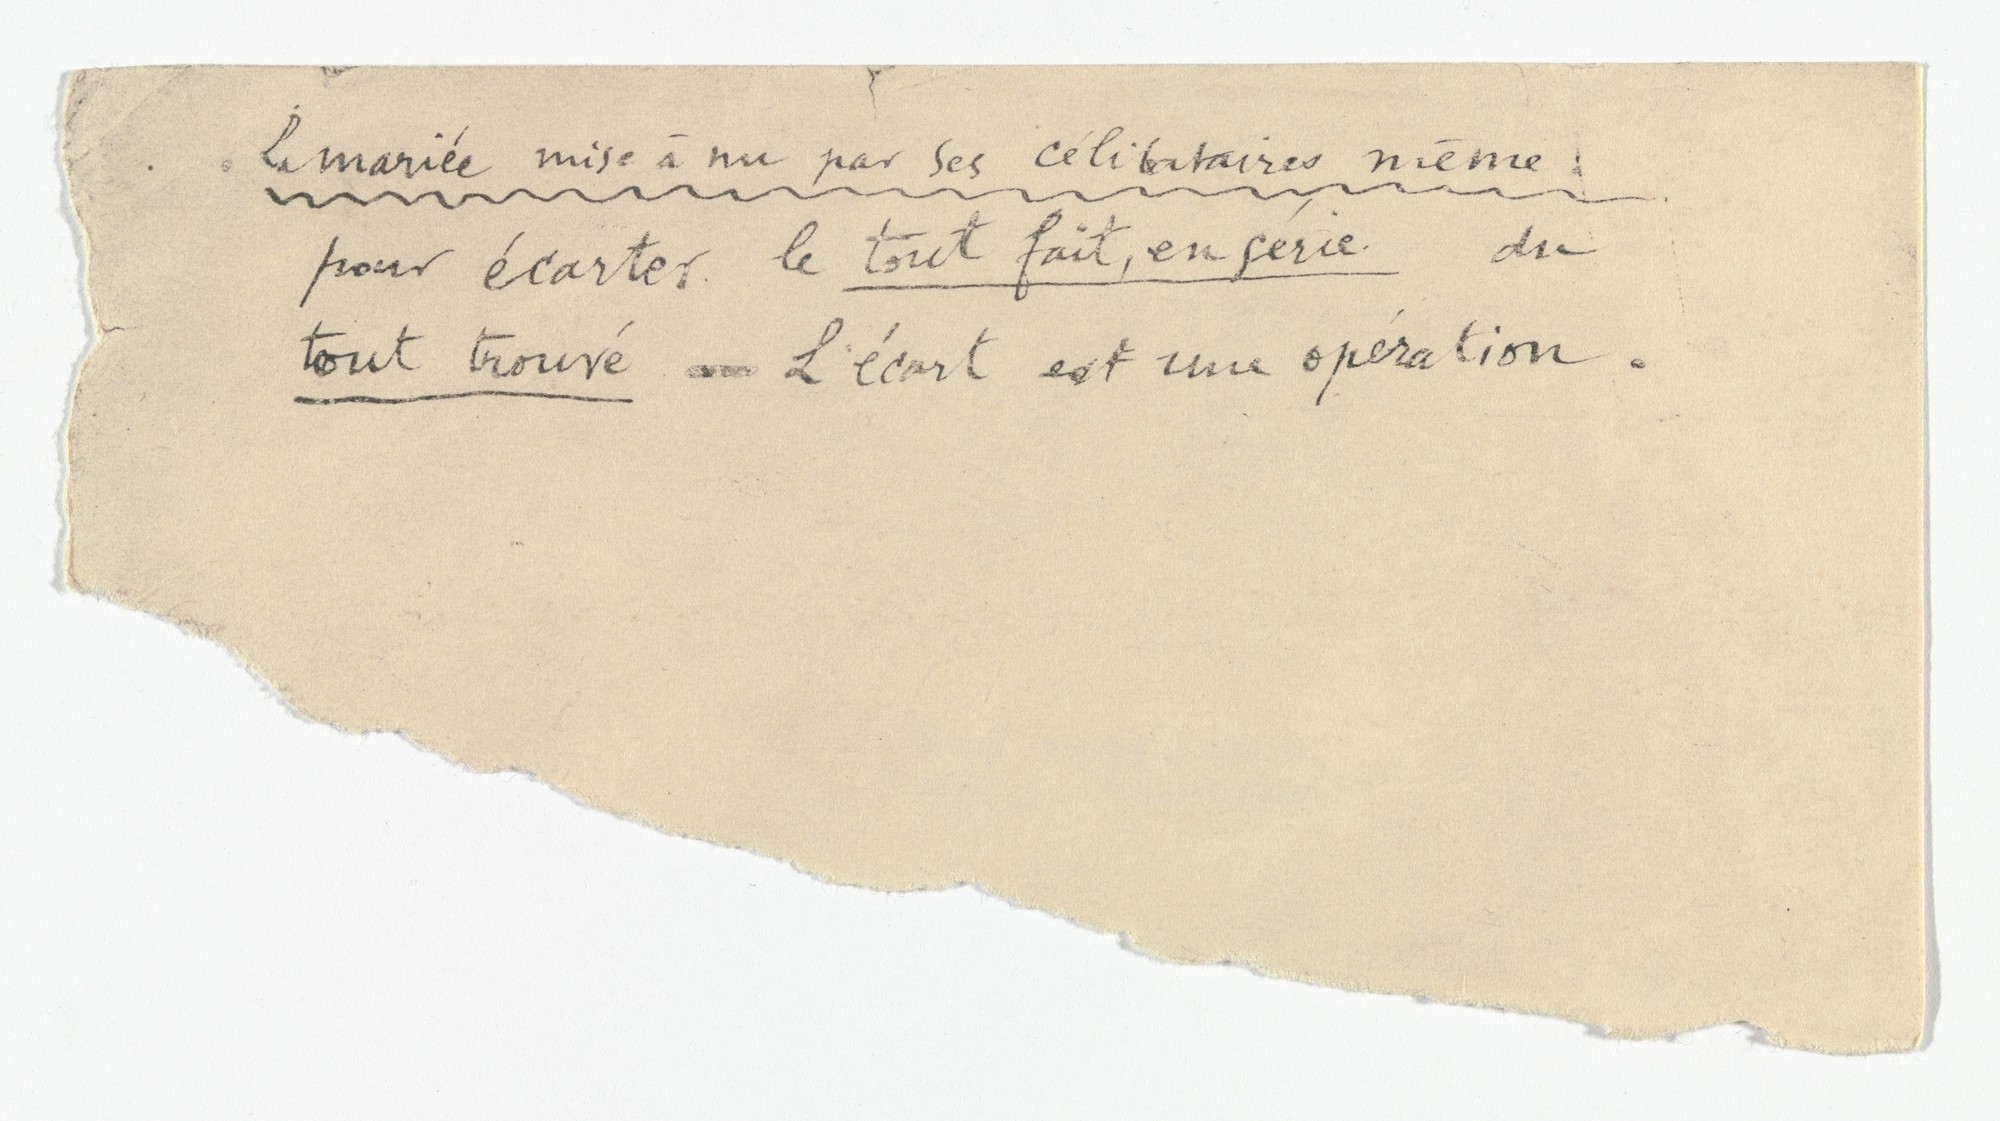 La mariée mise à nu par ses célibataires même :
pour écarter le tout fait, en série du
tout trouvé — L'écart est une opération .